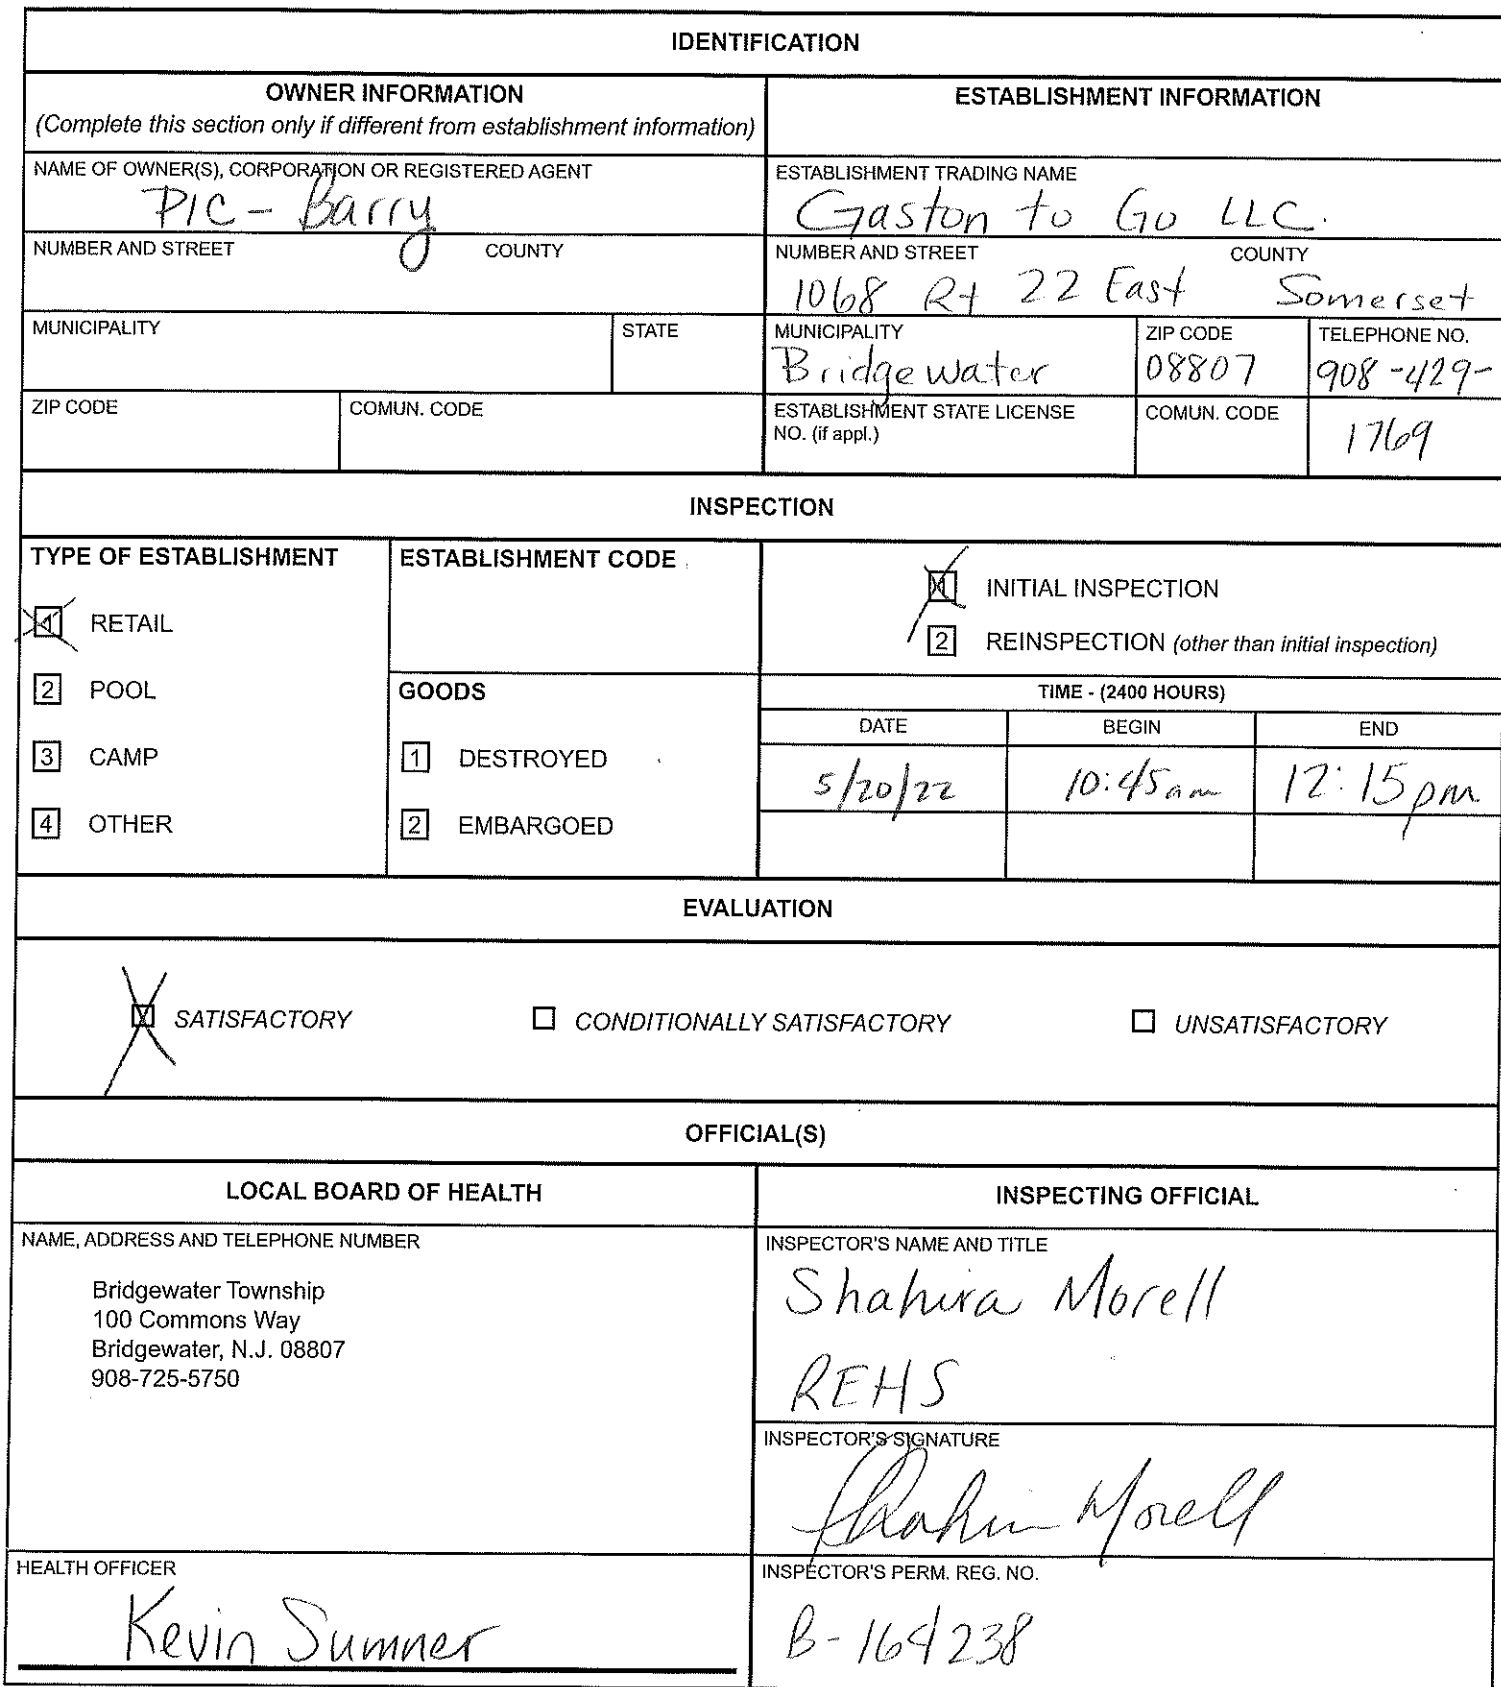 IDENTIFICATION
OWNER INFORMATION
(Complete this section only if different from establishment information)
ESTABLISHMENT INFORMATION
NAME OF OWNER(S), CORPORATION OR REGISTERED AGENT
PIC - Barry
ESTABLISHMENT TRADING NAME
Gaston to Go LLC.
NUMBER AND STREET COUNTY
NUMBER AND STREET COUNTY
1068 Rt 22 East Somerset
MUNICIPALITY STATE
MUNICIPALITY
Bridgewater
ZIP CODE
08807
TELEPHONE NO.
908-429-
1769
ZIP CODE COMUN. CODE
ESTABLISHMENT STATE LICENSE
NO. (if appl.)
COMUN. CODE
INSPECTION
TYPE OF ESTABLISHMENT
1 RETAIL
2 POOL
3 CAMP
4 OTHER
ESTABLISHMENT CODE
GOODS
1 DESTROYED
2 EMBARGOED
1 INITIAL INSPECTION
2 REINSPECTION (other than initial inspection)
TIME - (2400 HOURS)
DATE BEGIN END
5/20/22 10:45am 12:15pm
EVALUATION
SATISFACTORY CONDITIONALLY SATISFACTORY UNSATISFACTORY
OFFICIAL(S)
LOCAL BOARD OF HEALTH
NAME, ADDRESS AND TELEPHONE NUMBER
Bridgewater Township
100 Commons Way
Bridgewater, N.J. 08807
908-725-5750
HEALTH OFFICER
Kevin Sumner
INSPECTING OFFICIAL
INSPECTOR'S NAME AND TITLE
Shahira Morell
REHS
INSPECTOR'S SIGNATURE
Morell
INSPECTOR'S PERM. REG. NO.
B-164238